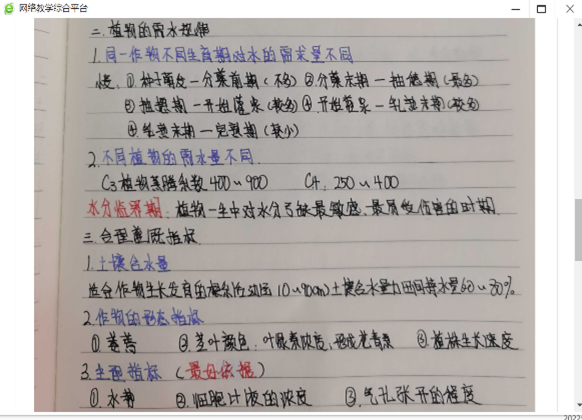 网络教学综合平台
二.植物的需水规律
1.同一作物不同生育期对水的需求量不同
小麦：①种子萌发—分蘖前期（不多）②分蘖末期—抽穗期（最多）
③抽穗期—开始灌浆（较多）④开始灌浆—乳熟末期（较多）
⑤乳熟末期—完熟期（较小）
2.不同植物的需水量不同.
C3植物蒸腾系数400~900 C4：250~400
水分临界期：植物一生中对水分亏缺最敏感、最易受伤害的时期.
三.合理灌溉指标
1.土壤含水量
适合作物生长发育的根系活动层（0~90cm）土壤含水量为田间持水量60~80%.
2.作物的形态指标
①萎蔫 ②茎叶颜色：叶绿素浓度、形成花青素 ③植株生长速度
3.生理指标（最好依据）
①水势 ②细胞汁液的浓度 ③气孔张开的程度
2022